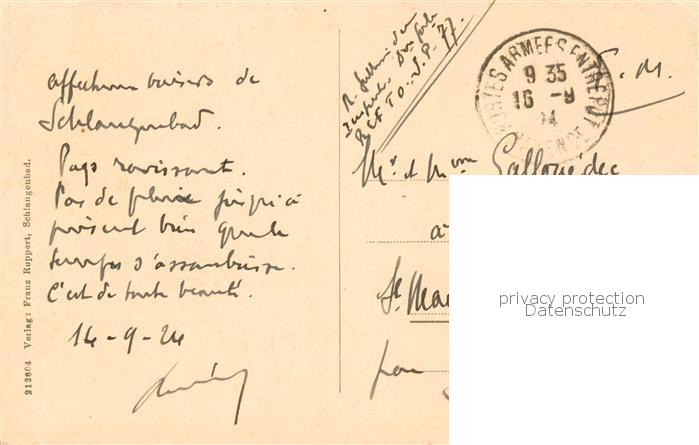 affectueux baisers de
Schlangenbad.
Pays ravissant.
Pas de pluie jusqu'à
présent bien que le
temps s'assombrisse.
C'est de toute beauté.
14-9-24
212604 Verlag: Franz Ruppert, Schlangenbad.
R.
S.P. 77.
POSTES ARMEES ENTREPOT
9 35
16 -9
24
F.M.
Mr et Mme Gallouédec
à
St
privacy protection
Datenschutz